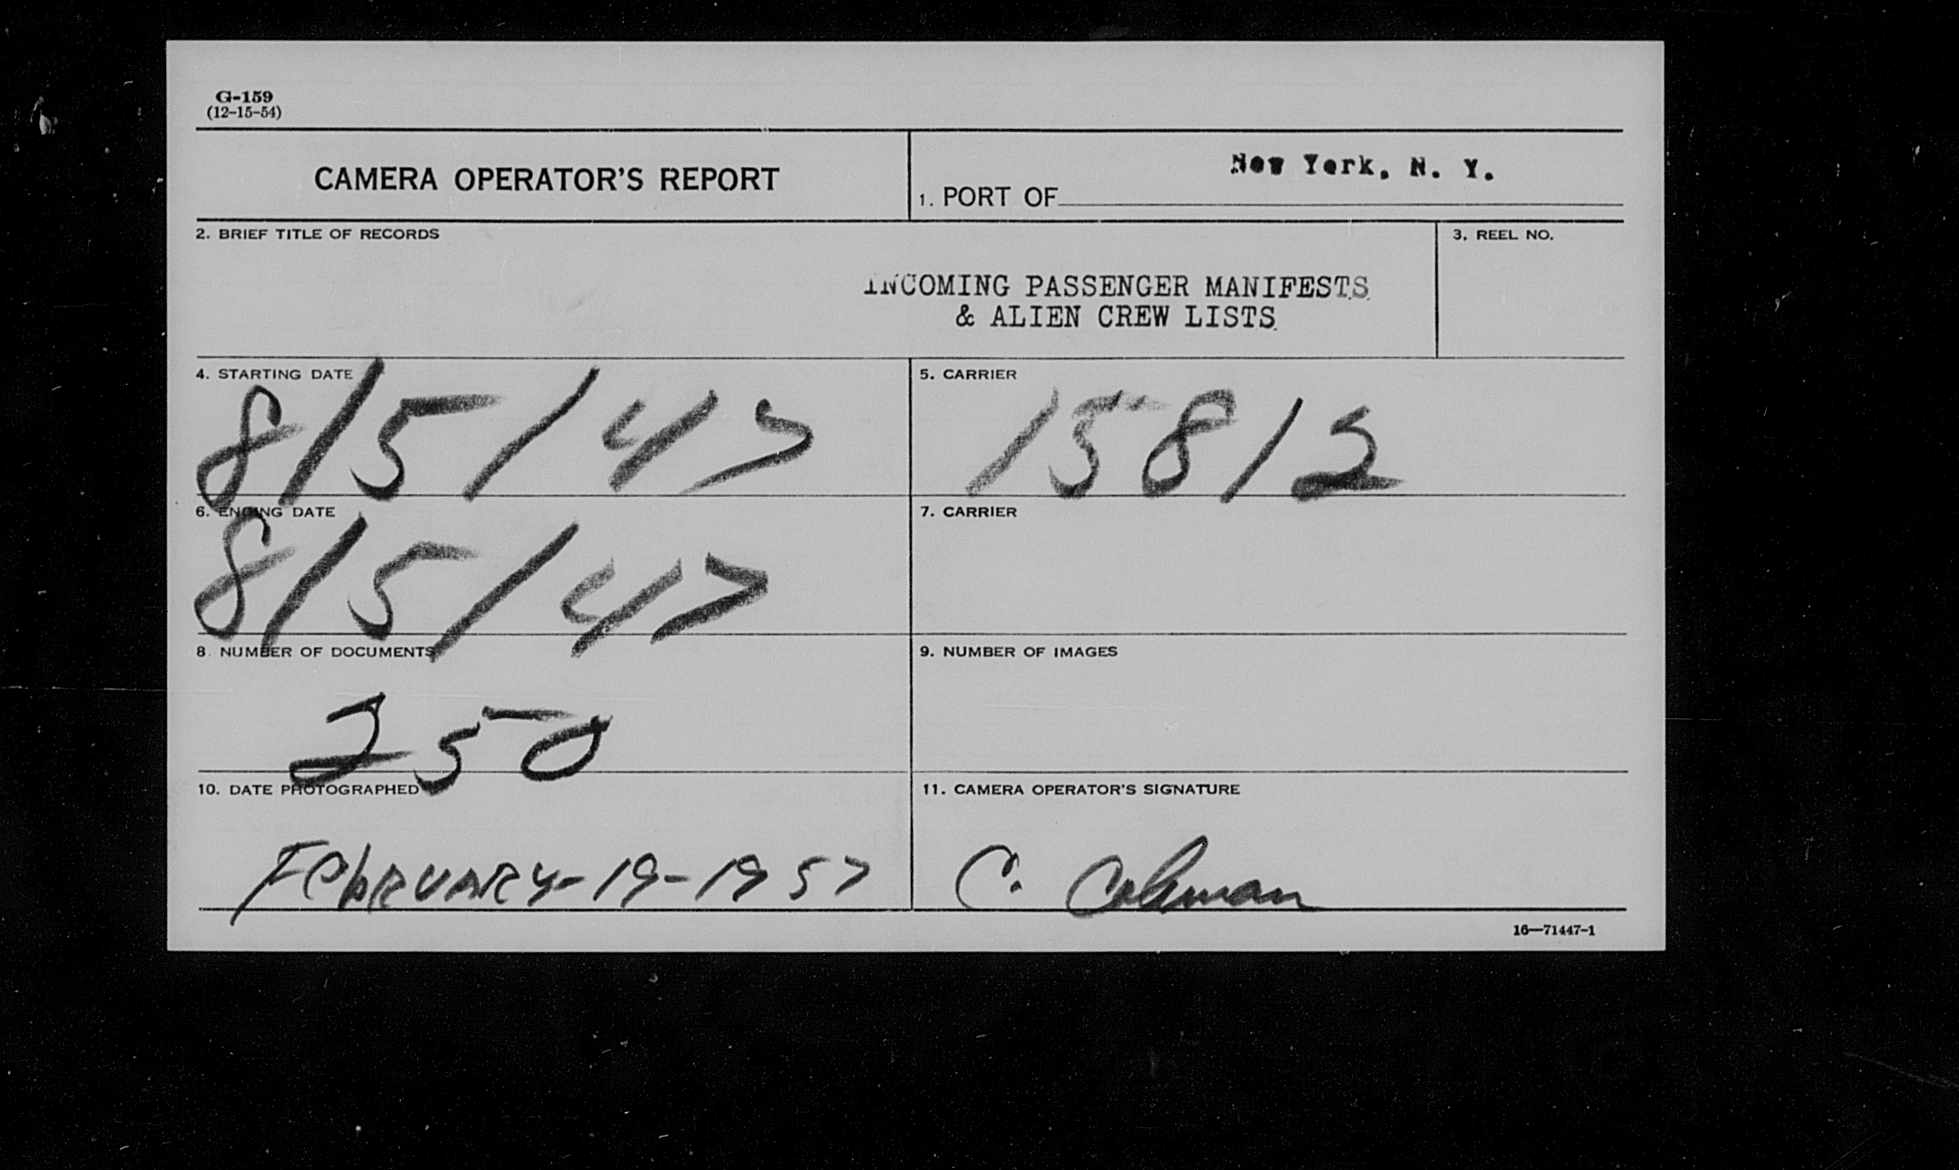 G-159
(12-15-54)
CAMERA OPERATOR'S REPORT
1. PORT OF New York, N. Y.
2. BRIEF TITLE OF RECORDS
3. REEL NO.
INCOMING PASSENGER MANIFESTS
& ALIEN CREW LISTS
4. STARTING DATE
8/5/47
5. CARRIER
15812
6. ENDING DATE
8/5/47
7. CARRIER
8 NUMBER OF DOCUMENTS
250
9. NUMBER OF IMAGES
10. DATE PHOTOGRAPHED
FebRUARY-19-1957
11. CAMERA OPERATOR'S SIGNATURE
C. Coleman
16—71447-1